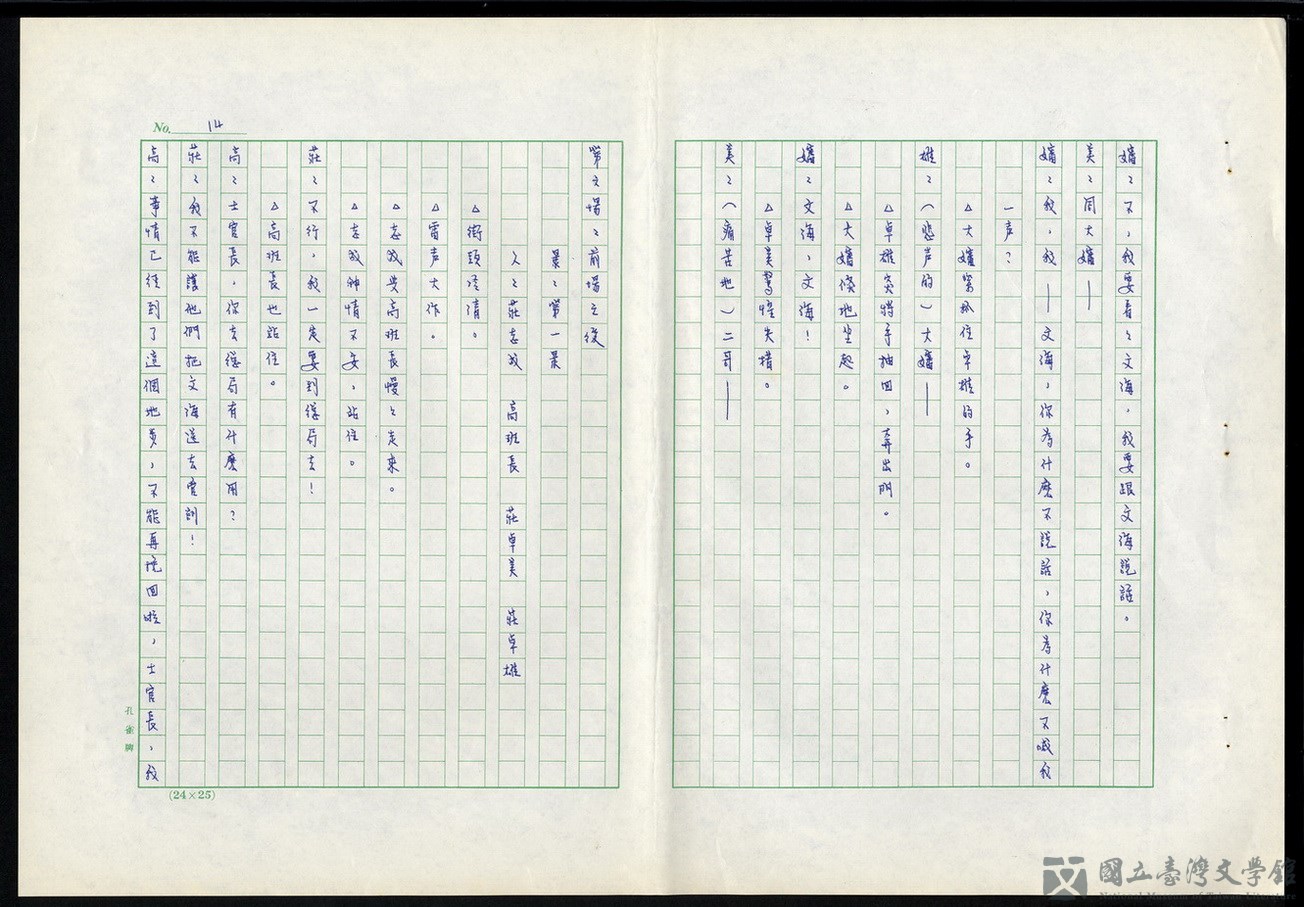 嬸：不，我要看：文海，我要跟文海說話。
美：同大嬸——
嬸：我，我——文海，你為什麼不說話，你為什麼不喊我
一声？
△大嬸緊抓住卓雄的手。
雄：（悲声的）大嬸——
△卓雄突將手抽回，奔出門。
△大嬸倏地坐起。
嬸：文海，文海！
△卓美驚惶失措。
美：（痛苦地）二哥——
No. 14
第六場：前場之後
景：第一景
人：莊志成 高班長 莊卓美 莊卓雄
△街頭冷清。
△雷声大作。
△志成與高班長慢慢走來。
△志成神情不安，站住。
莊：不行，我一定要到總局去！
△高班長也站住。
高：士官長，你去總局有什麼用？
莊：我不能讓他們把文海送去管訓！
高：事情已經到了這個地步，不能再挽回啦，士官長，我
孔雀牌
(24×25)
國立臺灣文學館
National Museum of Taiwan Literature